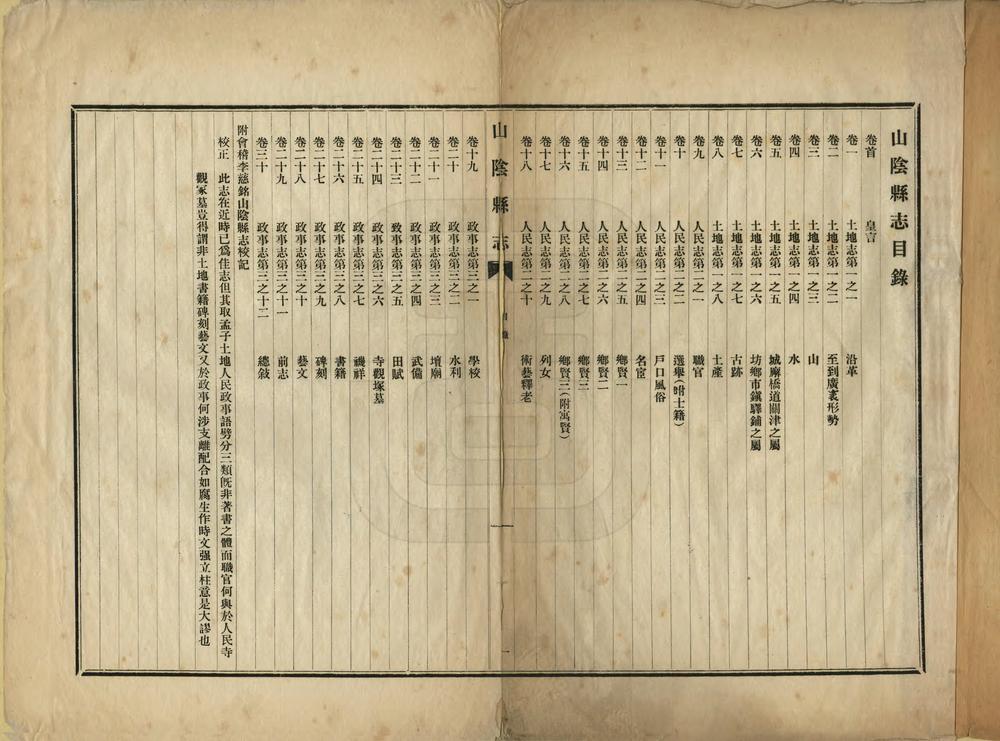 山陰縣志目錄
卷首 皇言
卷一 土地志第一之一 沿革
卷二 土地志第一之二 至到廣袤形勢
卷三 土地志第一之三 山
卷四 土地志第一之四 水
卷五 土地志第一之五 城廨橋道關津之屬
卷六 土地志第一之六 坊鄉市鎭驛鋪之屬
卷七 土地志第一之七 古跡
卷八 土地志第一之八 土產
卷九 人民志第二之一 職官
卷十 人民志第二之二 選舉(附士籍)
卷十一 人民志第二之三 戶口風俗
卷十二 人民志第二之四 名宦
卷十三 人民志第二之五 鄉賢一
卷十四 人民志第二之六 鄉賢二
卷十五 人民志第二之七 鄉賢三
卷十六 人民志第二之八 鄉賢三(附寓賢)
卷十七 人民志第二之九 列女
卷十八 人民志第二之十 術藝釋老
山陰縣志 目錄 一
卷十九 政事志第三之一 學校
卷二十 政事志第三之二 水利
卷二十一 政事志第三之三 壇廟
卷二十二 政事志第三之四 武備
卷二十三 致事志第三之五 田賦
卷二十四 政事志第三之六 寺觀塚墓
卷二十五 政事志第三之七 禨祥
卷二十六 政事志第三之八 書籍
卷二十七 政事志第三之九 碑刻
卷二十八 政事志第三之十 藝文
卷二十九 政事志第三之十一 前志
卷三十 政事志第三之十二 總敍
附會稽李慈銘山陰縣志校記
校正 此志在近時已爲佳志但其取孟子土地人民政事語劈分三類旣非著書之體而職官何與於人民寺
觀冢墓豈得謂非土地書籍碑刻藝文又於政事何涉支離配合如腐生作時文强立柱意是大謬也